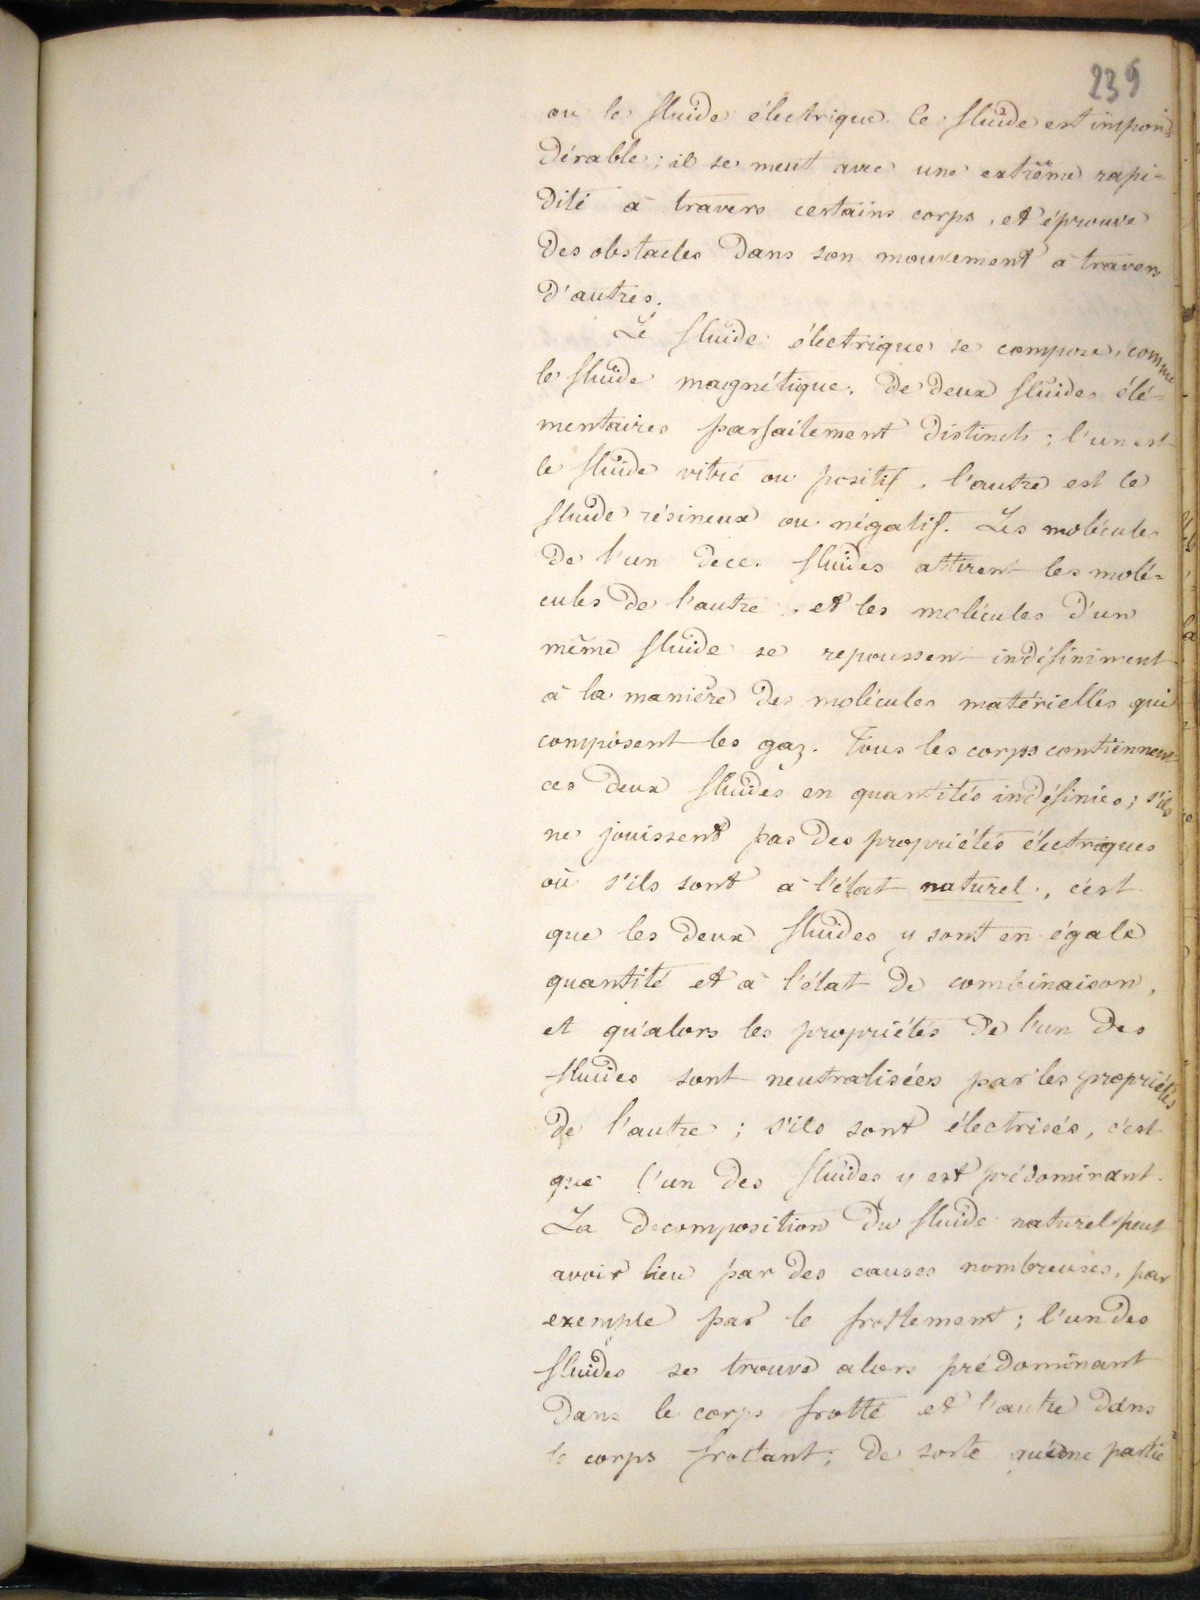 239
ou le fluide électrique. Ce fluide est impon-
dérable ; il se meut avec une extrême rapi-
dité à travers certains corps, et éprouve
des obstacles dans son mouvement à travers
d'autres.
Le fluide électrique se compose, comme
le fluide magnétique, de deux fluides élé-
mentaires parfaitement distincts ; l'un est
le fluide vitré ou positif, l'autre est le
fluide résineux ou négatif. Les molécules
de l'un de ces fluides attirent les molé-
cules de l'autre, et les molécules d'un
même fluide se repoussent indéfiniment
à la manière des molécules matérielles qui
composent les gaz. Tous les corps contiennent
ces deux fluides en quantités indéfinies ; s'ils
ne jouissent pas des propriétés électriques
où s'ils sont à l'état naturel, c'est
que les deux fluides y sont en égale
quantité et à l'état de combinaison,
et qu'alors les propriétés de l'un des
fluides sont neutralisées par les propriétés
de l'autre ; s'ils sont électrisés, c'est
que l'un des fluides y est prédominant.
La décomposition du fluide naturel peut
avoir lieu par des causes nombreuses, par
exemple par le frottement ; l'un des
fluides se trouve alors prédominant
dans le corps frotté et l'autre dans
le corps frottant ; de sorte qu'une partie